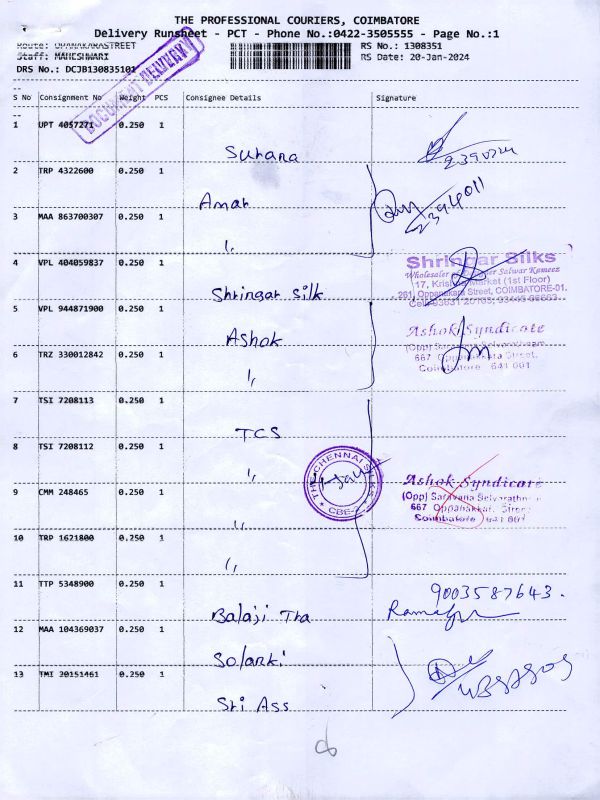 THE PROFESSIONAL COURIERS, COIMBATORE
Delivery Runsheet - PCT - Phone No.:0422-3505555 - Page No.:1
Route: OPANAKARASTREET RS No.: 1308351
Staff: MAHESHWARI RS Date: 20-Jan-2024
DRS No.: DCJB130835101
DOCUMENT DELIVERY
S No Consignment No Weight PCS Consignee Details Signature
1 UPT 4057271 0.250 1
Surana
2 TRP 4322600 0.250 1
Amar
2394011
3 MAA 863700307 0.250 1
"
4 VPL 404059837 0.250 1
Shringar Silk
Shringar Silks
Wholesaler Salwar Kameez
17, Krishna Market (1st Floor)
291, Oppanakara Street, COIMBATORE-01.
5 VPL 944871900 0.250 1
Ashok
Ashok Syndicate
(Opp) Saravana Selvarathnam
667 Oppanakkara Street,
Coimbatore 641 001
6 TRZ 330012842 0.250 1
"
7 TSI 7208113 0.250 1
TCS
8 TSI 7208112 0.250 1
"
THE CHENNAI SILKS
CBE-1
9 CMM 248465 0.250 1
"
Ashok Syndicate
(Opp) Saravana Selvarathn
667 Oppanakkar, Street
Coimbatore 641 001
10 TRP 1621800 0.250 1
"
11 TTP 5348900 0.250 1
Balaji Tha
9003587643.
12 MAA 104369037 0.250 1
Solanki
13 TMI 20151461 0.250 1
Sri Ass